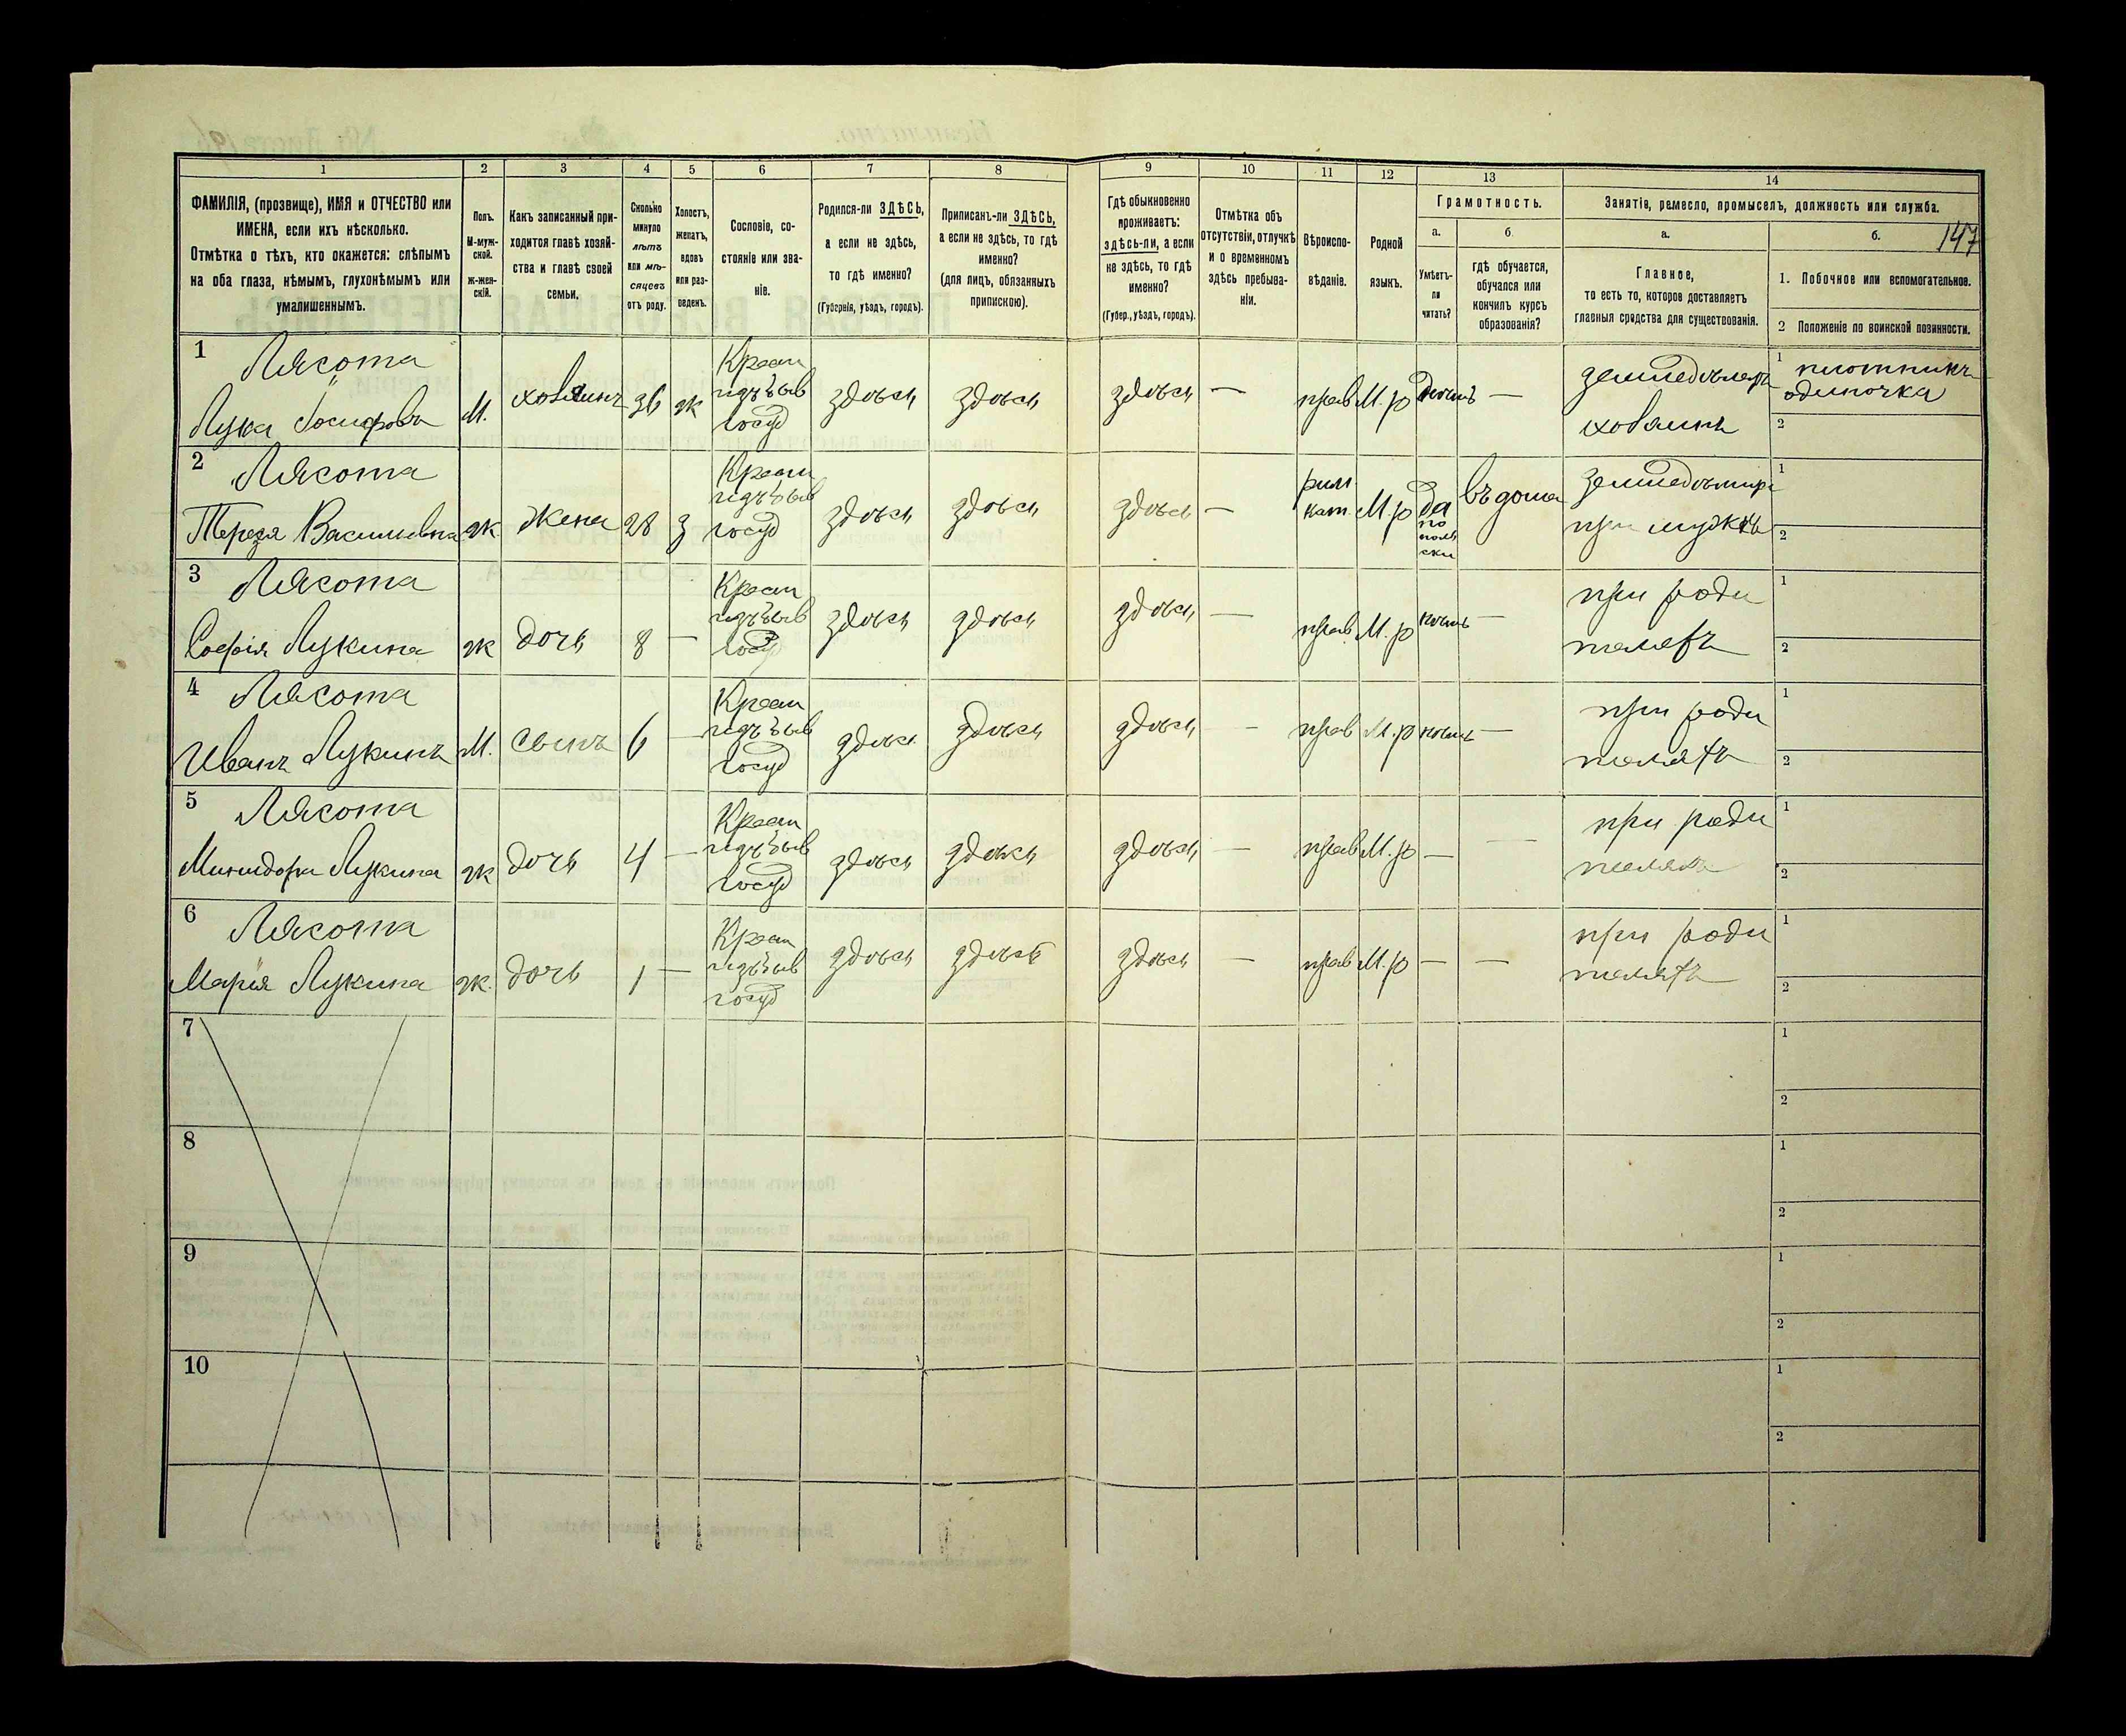 147
1 2 3 4 5 6 7 8 9 10 11 12 13 14
ФАМИЛІЯ, (прозвище), ИМЯ и ОТЧЕСТВО или
ИМЕНА, если ихъ нѣсколько.
Отмѣтка о тѣхъ, кто окажется: слѣпымъ
на оба глаза, нѣмымъ, глухонѣмымъ или
умалишеннымъ.
Полъ.
М-муж-
ской.
ж-жен-
скій.
Какъ записанный при-
ходится главѣ хозяй-
ства и главѣ своей
семьи.
Сколько
минуло
лѣтъ
или мѣ-
сяцевъ
отъ роду.
Холостъ,
женатъ,
вдовъ
или раз-
веденъ.
Сословіе, со-
стояніе или зва-
ніе.
Родился-ли ЗДѢСЬ,
а если не здѣсь,
то гдѣ именно?
(Губернія, уѣздъ, городъ).
Приписанъ-ли ЗДѢСЬ,
а если не здѣсь, то гдѣ
именно?
(для лицъ, обязанныхъ
припискою).
Гдѣ обыкновенно
проживаетъ:
здѣсь-ли, а если
не здѣсь, то гдѣ
именно?
(Губер., уѣздъ, городъ).
Отмѣтка объ
отсутствіи, отлучкѣ
и о временномъ
здѣсь пребыва-
ніи.
Вѣроиспо-
вѣданіе.
Родной
языкъ.
Грамотность.
а.
Умѣетъ-
ли
читать?
б.
гдѣ обучается,
обучался или
кончилъ курсъ
образованія?
Занятіе, ремесло, промыселъ, должность или служба.
а.
Главное,
то есть то, которое доставляетъ
главныя средства для существованія.
б.
1. Побочное или вспомогательное.
2 Положеніе по воинской повинности.
1 Лясота
Лука Іосифовъ М. 36 ж Крест
госуд здѣсь здѣсь здѣсь — прав М.р —
хозяинъ
1 плотникъ
одиночка
2
2 Лясота
Тереза Васильевна ж. жена 28 з Крест
госуд здѣсь здѣсь здѣсь — рим
кат. М.р да
по
поль
ски
въ дома
при мужѣ
1
2
3 Лясота
Софія Лукина ж дочь 8 — Крест
госуд здѣсь здѣсь здѣсь — прав М.р —
при роди
теляхъ
1
2
4 Лясота
Иванъ Лукинъ М. сынъ 6 — Крест
госуд здѣсь здѣсь здѣсь — прав М.р —
при роди
теляхъ
1
2
5 Лясота
Минидора Лукина ж дочь 4 — Крест
госуд здѣсь здѣсь здѣсь — прав М.р — —
при роди
теляхъ
1
2
6 Лясота
Марія Лукина ж. дочь 1 — Крест
госуд здѣсь здѣсь здѣсь — прав М.р — —
при роди
теляхъ
1
2
7
1
2
8
1
2
9
1
2
10
1
2